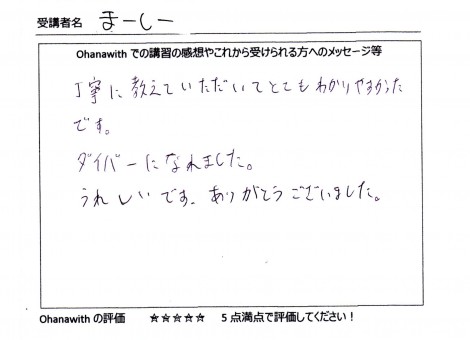 受講者名 まーしー
Ohanawith での講習の感想やこれから受けられる方へのメッセージ等
丁寧に教えていただいてとてもわかりやすかった
です。
ダイバーになれました。
うれしいです。ありがとうございました。
Ohanawith の評価 ☆☆☆☆☆ 5点満点で評価してください！